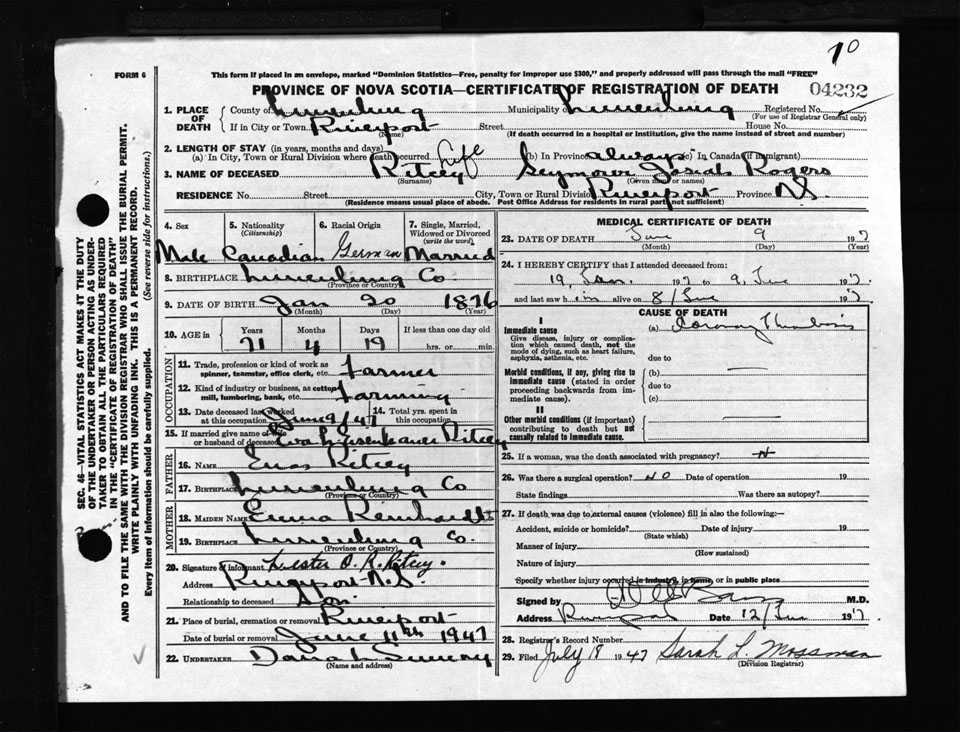 10
FORM 6
This form if placed in an envelope, marked "Dominion Statistics—Free, penalty for improper use $300," and properly addressed will pass through the mail "FREE"
PROVINCE OF NOVA SCOTIA—CERTIFICATE OF REGISTRATION OF DEATH
04232
1. PLACE OF DEATH
County of Lunenburg Municipality of Lunenburg Registered No.
(For use of Registrar General only)
If in City or Town Riverport Street House No.
(Name) (If death occurred in a hospital or institution, give the name instead of street and number)
2. LENGTH OF STAY (in years, months and days)
(a) In City, Town or Rural Division where death occurred Life (b) In Province always (c) In Canada (if immigrant)
3. NAME OF DECEASED Ritcey Seymour Josiah Rogers
(Surname) (Given name or names)
RESIDENCE No. Street City, Town or Rural Division Riverport Province N.S.
(Residence means usual place of abode. Post Office Address for residents in rural part not sufficient)
4. Sex 5. Nationality (Citizenship) 6. Racial Origin 7. Single, Married, Widowed or Divorced (write the word)
Male Canadian German Married
8. BIRTHPLACE Lunenburg Co
(Province or Country)
9. DATE OF BIRTH Jan 20 1876
(Month) (Day) (Year)
10. AGE in Years Months Days If less than one day old
71 4 19 hrs. or min.
OCCUPATION
11. Trade, profession or kind of work as spinner, teamster, office clerk, etc. Farmer
12. Kind of industry or business, as cotton mill, lumbering, bank, etc. Farming
13. Date deceased last worked at this occupation June 9/47 14. Total yrs. spent in this occupation
15. If married give name of wife or husband of deceased Eva Ritcey
FATHER
16. NAME Enos Ritcey
17. Birthplace Lunenburg Co
(Province or Country)
MOTHER
18. MAIDEN NAME Emma Reinhardt
19. BIRTHPLACE Lunenburg Co.
(Province or Country)
20. Signature of informant Lester O. R. Ritcey.
Address Riverport N.S
Relationship to deceased Son.
21. Place of burial, cremation or removal Riverport
Date of burial or removal June 11th 1947
22. UNDERTAKER
(Name and address)
MEDICAL CERTIFICATE OF DEATH
23. DATE OF DEATH June 9 1947
(Month) (Day) (Year)
24. I HEREBY CERTIFY that I attended deceased from:
19, Jan. 1947 to 9, June 1947
and last saw him alive on 8/June 1947
CAUSE OF DEATH
I
Immediate cause (a) Coronary Thrombosis
Give disease, injury or complication which caused death, not the mode of dying, such as heart failure, asphyxia, asthenia, etc. due to
Morbid conditions, if any, giving rise to immediate cause (stated in order proceeding backwards from immediate cause). (b) —
due to
(c)
II
Other morbid conditions (if important) contributing to death but not causally related to immediate cause. —
25. If a woman, was the death associated with pregnancy?
26. Was there a surgical operation? NO Date of operation 19
State findings Was there an autopsy?
27. If death was due to external causes (violence) fill in also the following:—
Accident, suicide or homicide? Date of injury 19
(State which)
Manner of injury
(How sustained)
Nature of injury
Specify whether injury occurred in industry, in home, or in public place
Signed by M.D.
Address Riverport Date 12/June 1947
28. Registrar's Record Number
29. Filed July 18 1947 Sarah L. Mossman
(Division Registrar)
SEC. 46—VITAL STATISTICS ACT MAKES IT THE DUTY
OF THE UNDERTAKER OR PERSON ACTING AS UNDERTAKER TO OBTAIN ALL THE PARTICULARS REQUIRED
IN THE "CERTIFICATE OF REGISTRATION OF DEATH"
AND TO FILE THE SAME WITH THE DIVISION REGISTRAR WHO SHALL ISSUE THE BURIAL PERMIT.
WRITE PLAINLY WITH UNFADING INK. THIS IS A PERMANENT RECORD.
Every item of information should be carefully supplied. (See reverse side for instructions.)